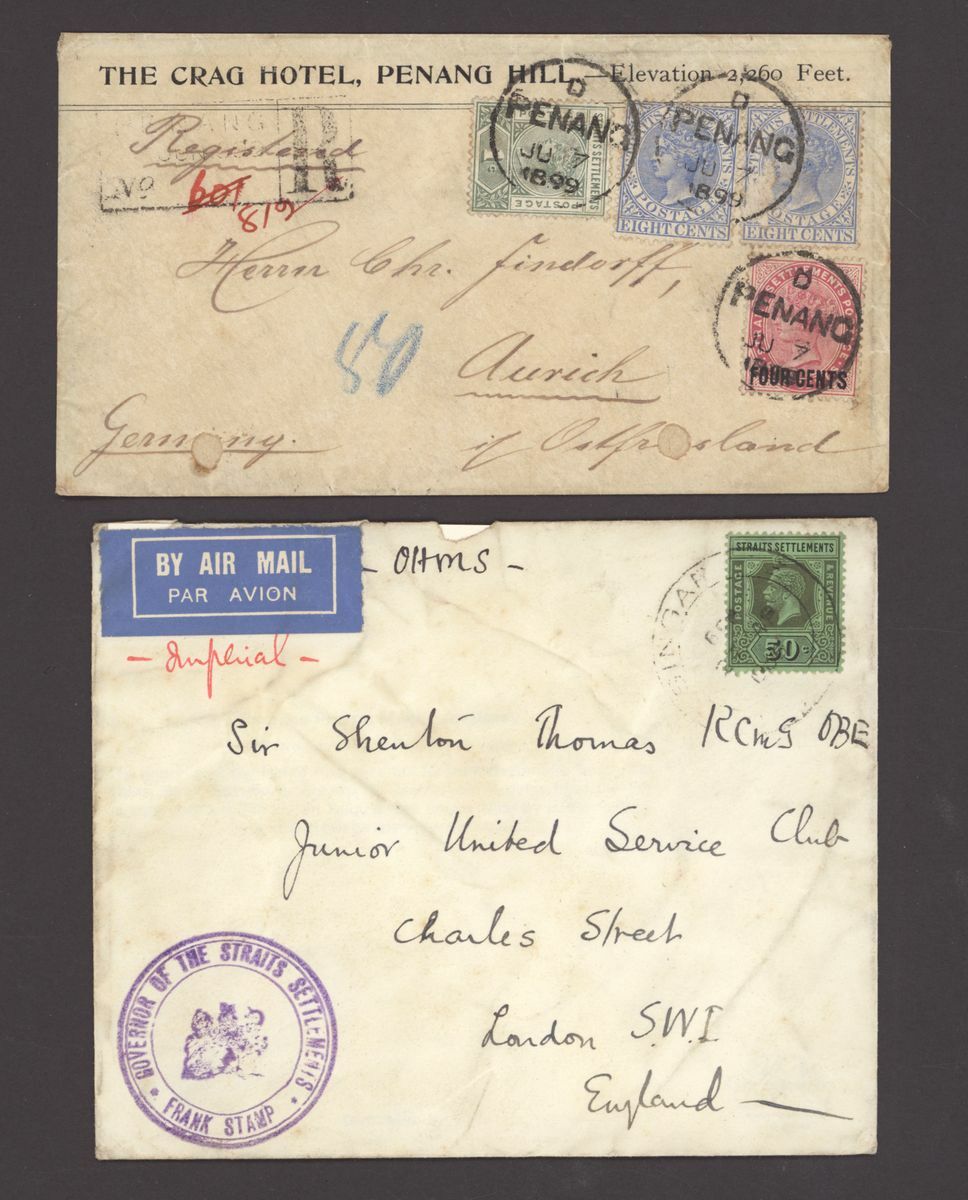 THE CRAG HOTEL, PENANG HILL,—Elevation 2,260 Feet.
Registered
R
No
601
819
PENANG
D
JU 7
1899
STRAITS SETTLEMENTS
POSTAGE
D
PENANG
JU 7
1899
POSTAGE
EIGHT CENTS
SETTLEMENTS
POSTAGE
EIGHT CENTS
SETTLEMENTS
D
PENANG
JU 7
FOUR CENTS
Herrn Chr. Findorff,
80
Aurich
Germany.
i/ Ostfriesland
BY AIR MAIL
PAR AVION
- OHMS -
- Imperial -
STRAITS SETTLEMENTS
POSTAGE
& REVENUE
50c
Sir Shenton Thomas KCMG OBE
Junior United Service Club
Charles Street
London S.W.1
England —
GOVERNOR OF THE STRAITS SETTLEMENTS
* FRANK STAMP *